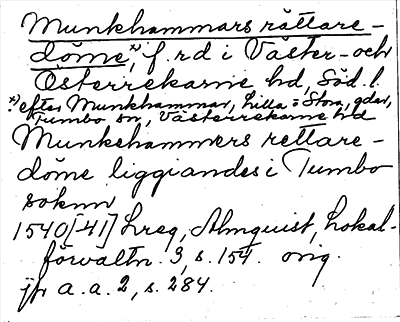 Munkhammars rättare-
döme,*) f. rd i Väster- och
Österrekarne hd, Söd. l.
*) efter Munkhammar, Lilla o Stora, gdar,
Tumbo sn, Västerrekarne hd
Munkehammers rettare-
döme liggiandes i Tumbo
soknn
1540[-41] Lreg, Almquist, Lokal-
förvaltn. 3, s. 154. orig.
jfr a. a. 2, s. 284.